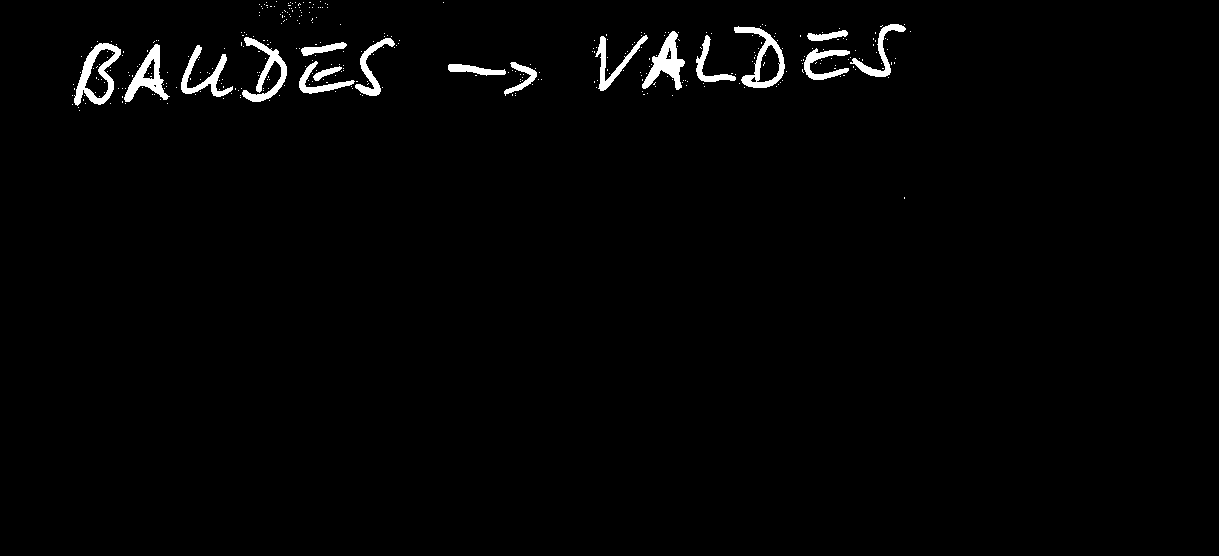 BAUDES → VALDES